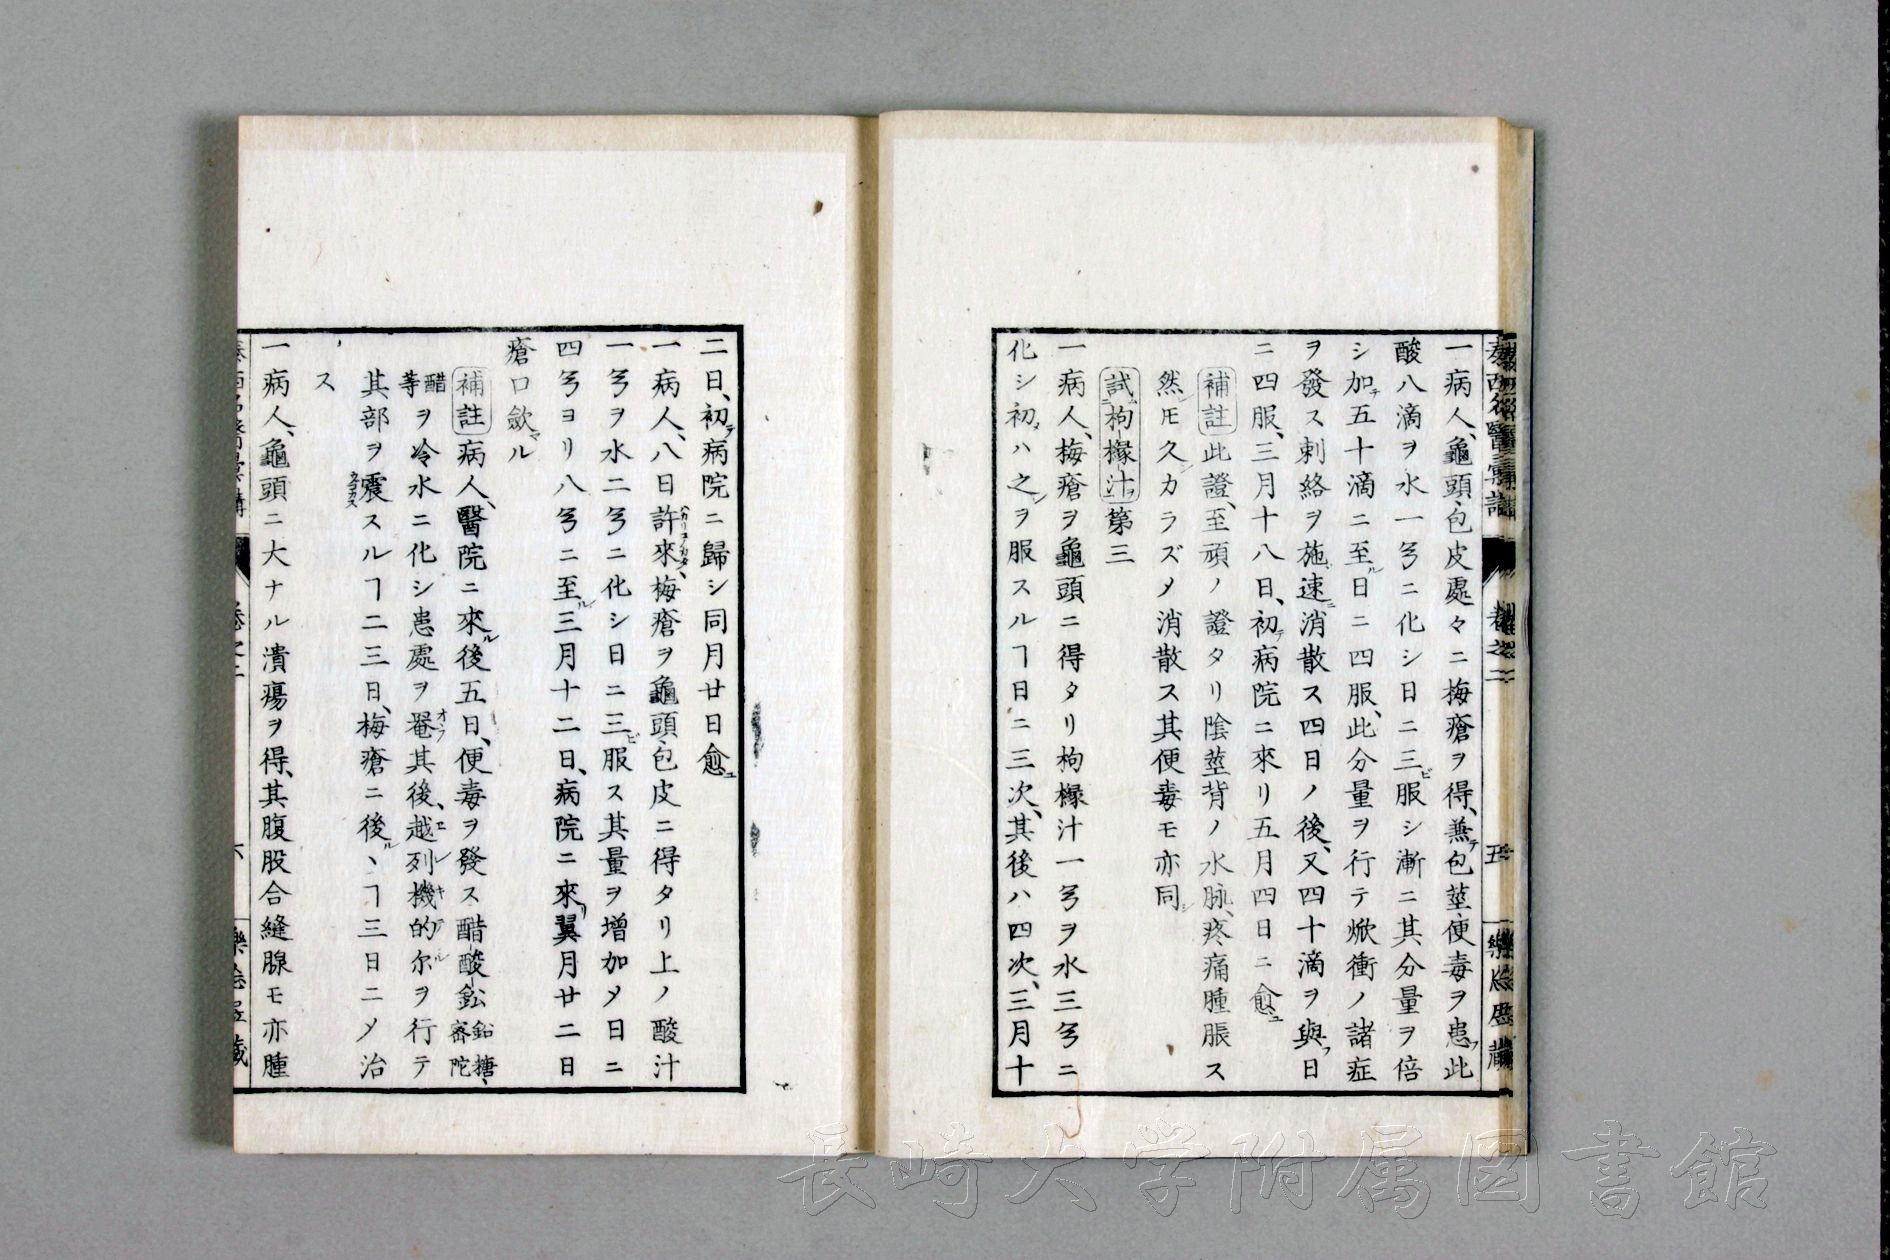 一病人、龜頭、包皮處々ニ梅瘡ヲ得、兼テ包莖便毒ヲ患フ此
酸八滴ヲ水一㕮ニ化シ日ニ三ビ服シ漸ニ其分量ヲ倍
シ加テ五十滴ニ至ル日ニ四服、此分量ヲ行テ焮衝ノ諸症
ヲ發ス刺絡ヲ施、速ニ消散ス四日ノ後、又四十滴ヲ與フ日
ニ四服、三月十八日、初テ病院ニ來リ五月四日ニ愈ユ
補註此證、至頑ノ證タリ陰莖背ノ水脉、疼痛腫脹ス
然レ𪜈久シカラズ〆消散ス其便毒モ亦同シ
試ムニ枸櫞汁ヲ第三
一病人、梅瘡ヲ龜頭ニ得タリ枸櫞汁一㕮ヲ水三㕮ニ
化シ初メハ之レヲ服スルヿ日ニ三次、其後ハ四次、三月十
卷之二
五
二日、初テ病院ニ歸シ同月廿日愈ユ
一病人、八日許來ハカリコノカタ、梅瘡ヲ龜頭、包皮ニ得タリ上ノ酸汁
一㕮ヲ水二㕮ニ化シ日ニ三ビ服ス其量ヲ增加〆日ニ
四㕮ヨリ八㕮ニ至ル三月十二日、病院ニ來リ翼月廿二日
瘡口歛マル
補註病人、醫院ニ來ル後五日、便毒ヲ發ス醋酸鉛鉛糖、密陀
醋等ヲ冷水ニ化シ患處ヲ罨オヽフ其後、越列機的尓エレキテルヲ行テ
其部ヲ震ウゴカススルヿ二三日、梅瘡ニ後ルヽヿ三日ニ〆治
ス
一病人、龜頭ニ大ナル潰瘍ヲ得、其腹股合縫腺モ亦腫
長崎大学附属図書館